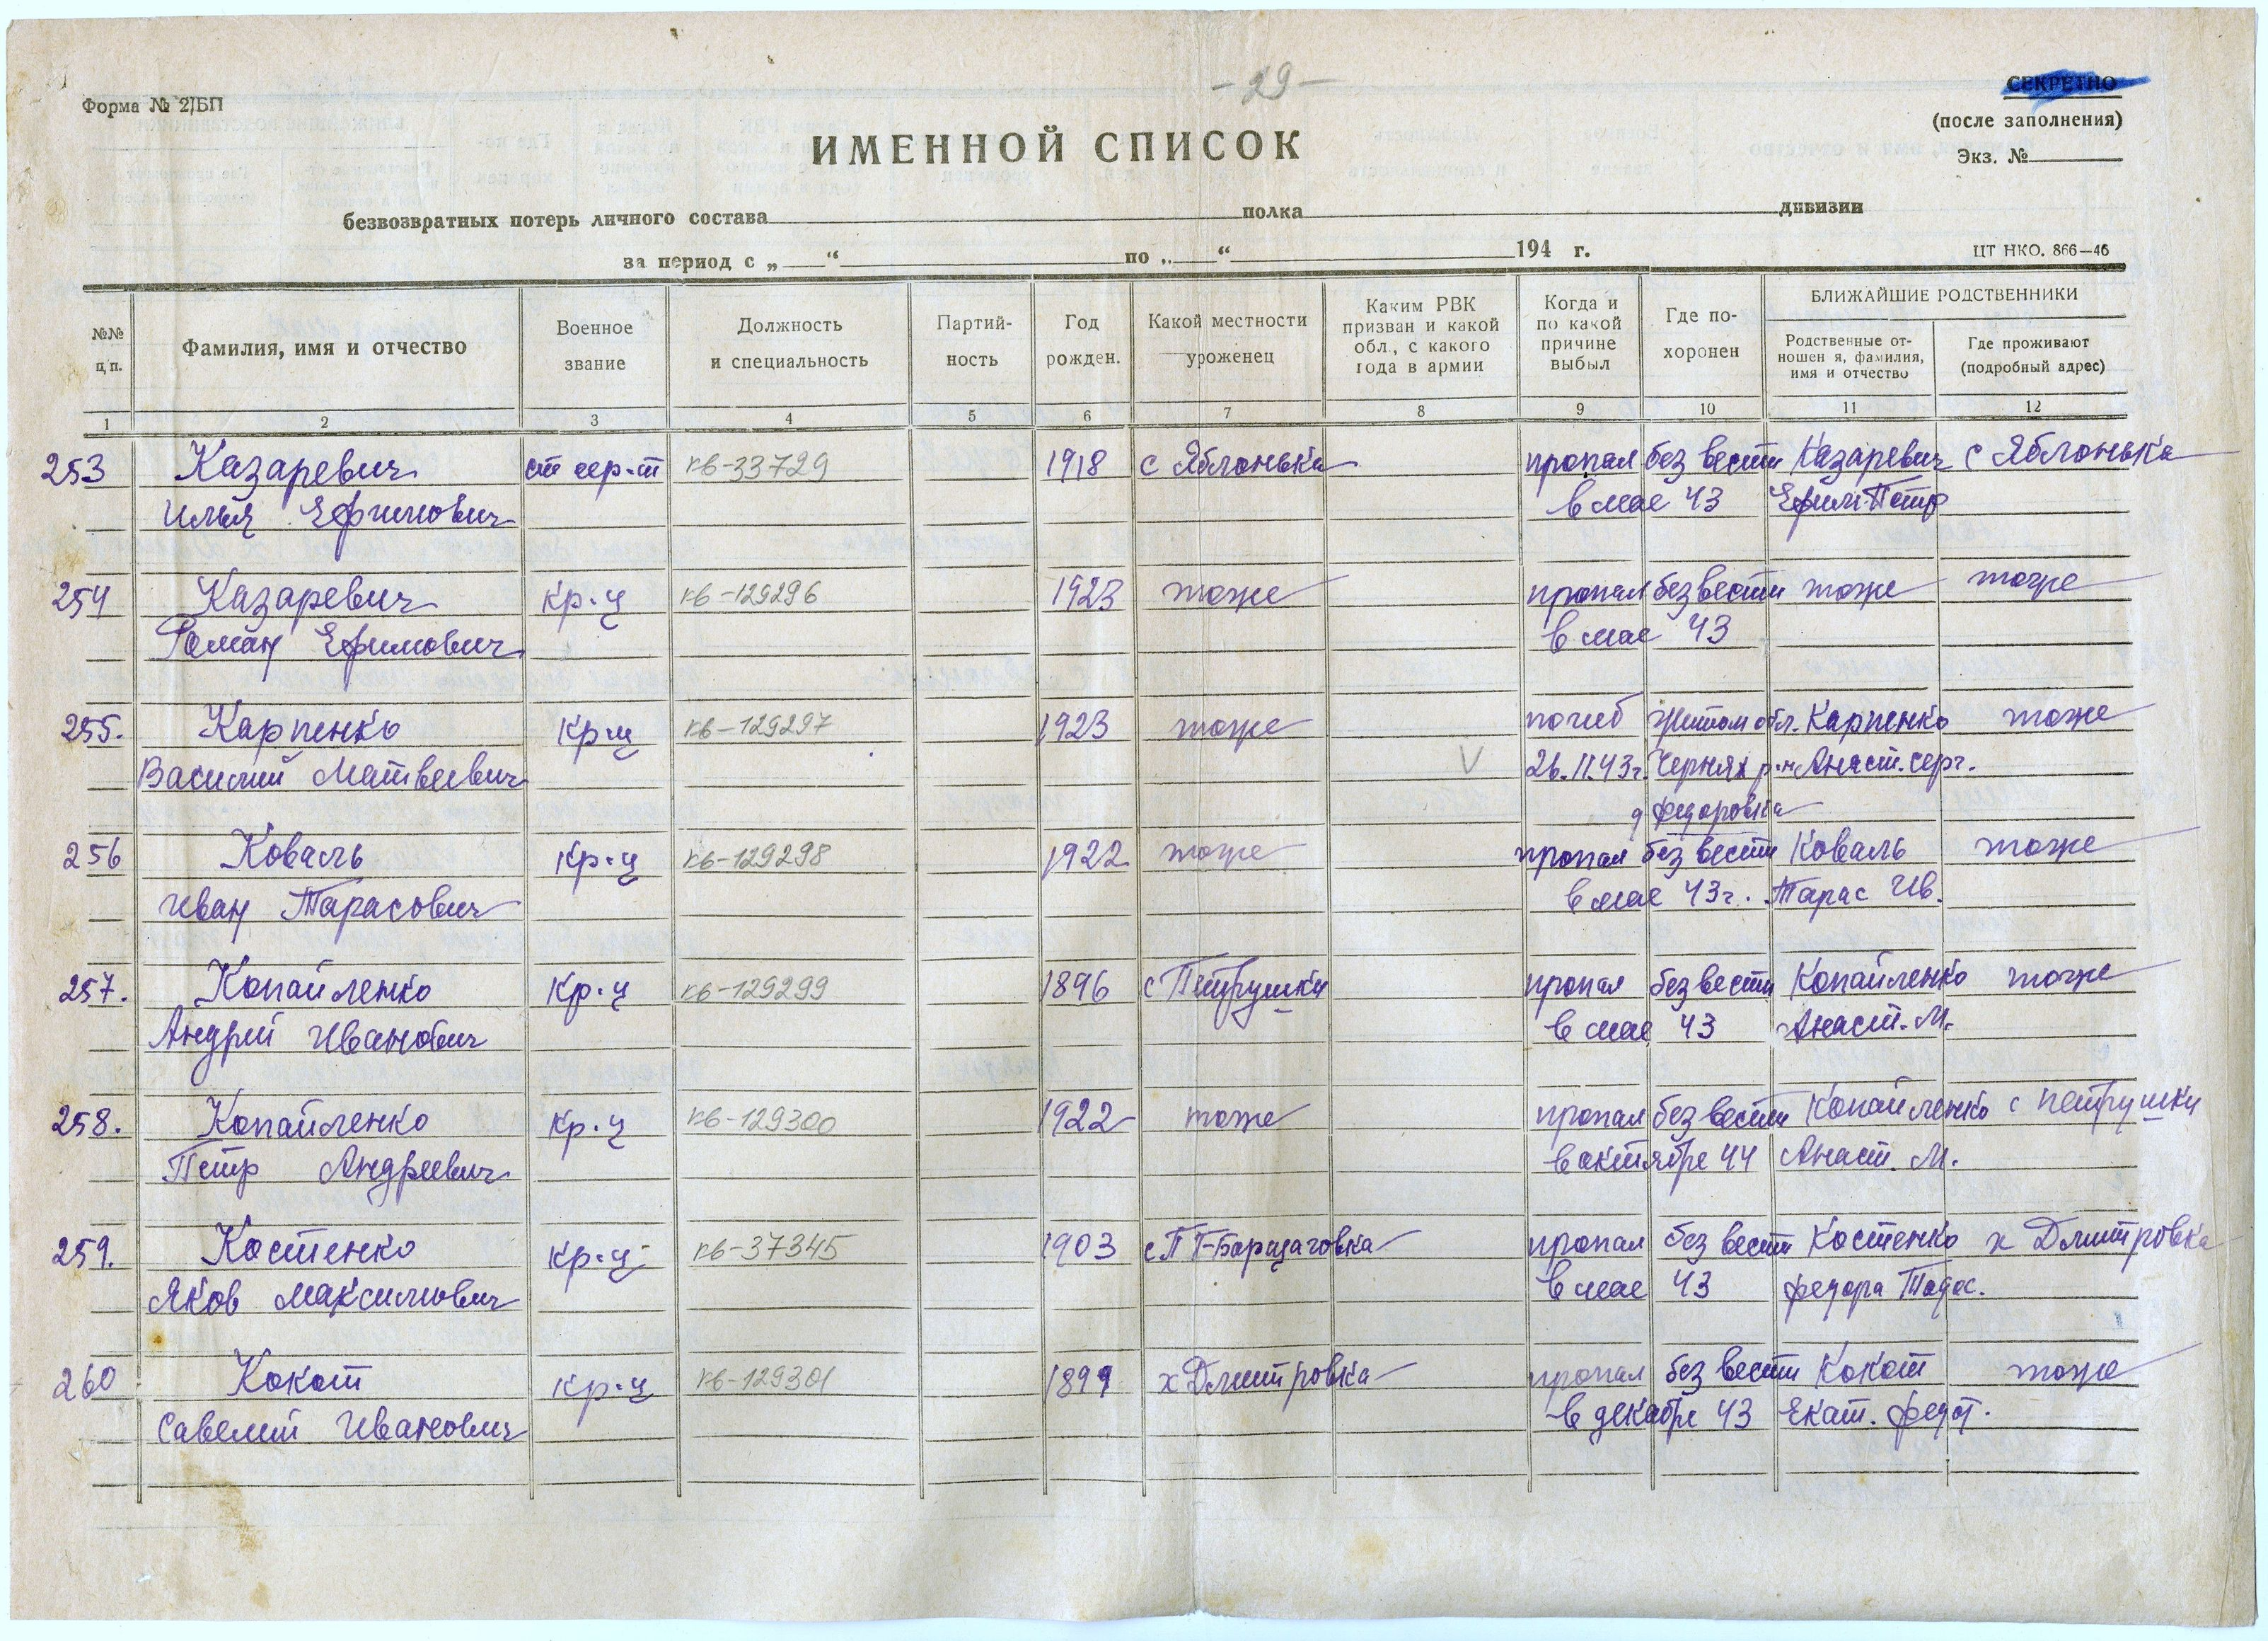 - 29 -
Форма № 2/БП
СЕКРЕТНО
(после заполнения)
Экз. №
ИМЕННОЙ СПИСОК
безвозвратных потерь личного состава полка дивизии
за период с „ “ по „ “ 194 г.
ЦТ НКО. 866—46
№№ п/п.
Фамилия, имя и отчество
Военное звание
Должность и специальность
Партий-ность
Год рожден.
Какой местности уроженец
Каким РВК призван и какой обл., с какого года в армии
Когда и по какой причине выбыл
Где по-хоронен
БЛИЖАЙШИЕ РОДСТВЕННИКИ
Родственные от-ношен я, фамилия, имя и отчество
Где проживают (подробный адрес)
1 2 3 4 5 6 7 8 9 10 11 12
253 Казаревич ст сер-т кв-33729 1918 с Яблонька пропал без вести Казаревич с Яблонька
Илья Ефимович в мае 43 Ефим Петр
254 Казаревич кр-ц кв-129296 1923 тоже пропал без вести тоже тоже
Роман Ефимович в мае 43
255. Карпенко кр-ц кв-129297 1923 тоже погиб Житом обл. Карпенко тоже
Василий Матвеевич V 26.11.43г. Черних р-н Анаст. Серг.
д Федоровка
256 Коваль кр-ц кв-129298 1922 тоже пропал без вести Коваль тоже
Иван Тарасович в мае 43г. Тарас Ив.
257. Копайленко кр-ц кв-129299 1896 с Петрушки пропал без вести Копайленко тоже
Андрий Иванович в мае 43 Анаст. М.
258. Копайленко кр-ц кв-129300 1922 тоже пропал без вести Копайленко с петрушки
Петр Андреевич в октябре 44 Анаст. М.
259. Костенко кр-ц кв-37345 1903 пропал без вести Костенко х Дмитровка
Яков Максимович в мае 43 Федора Тодос.
260 Кокот кр-ц кв-129301 1899 х Дмитровка пропал без вести Кокот тоже
Савелий Иванович в декабре 43 Екат. Федот.